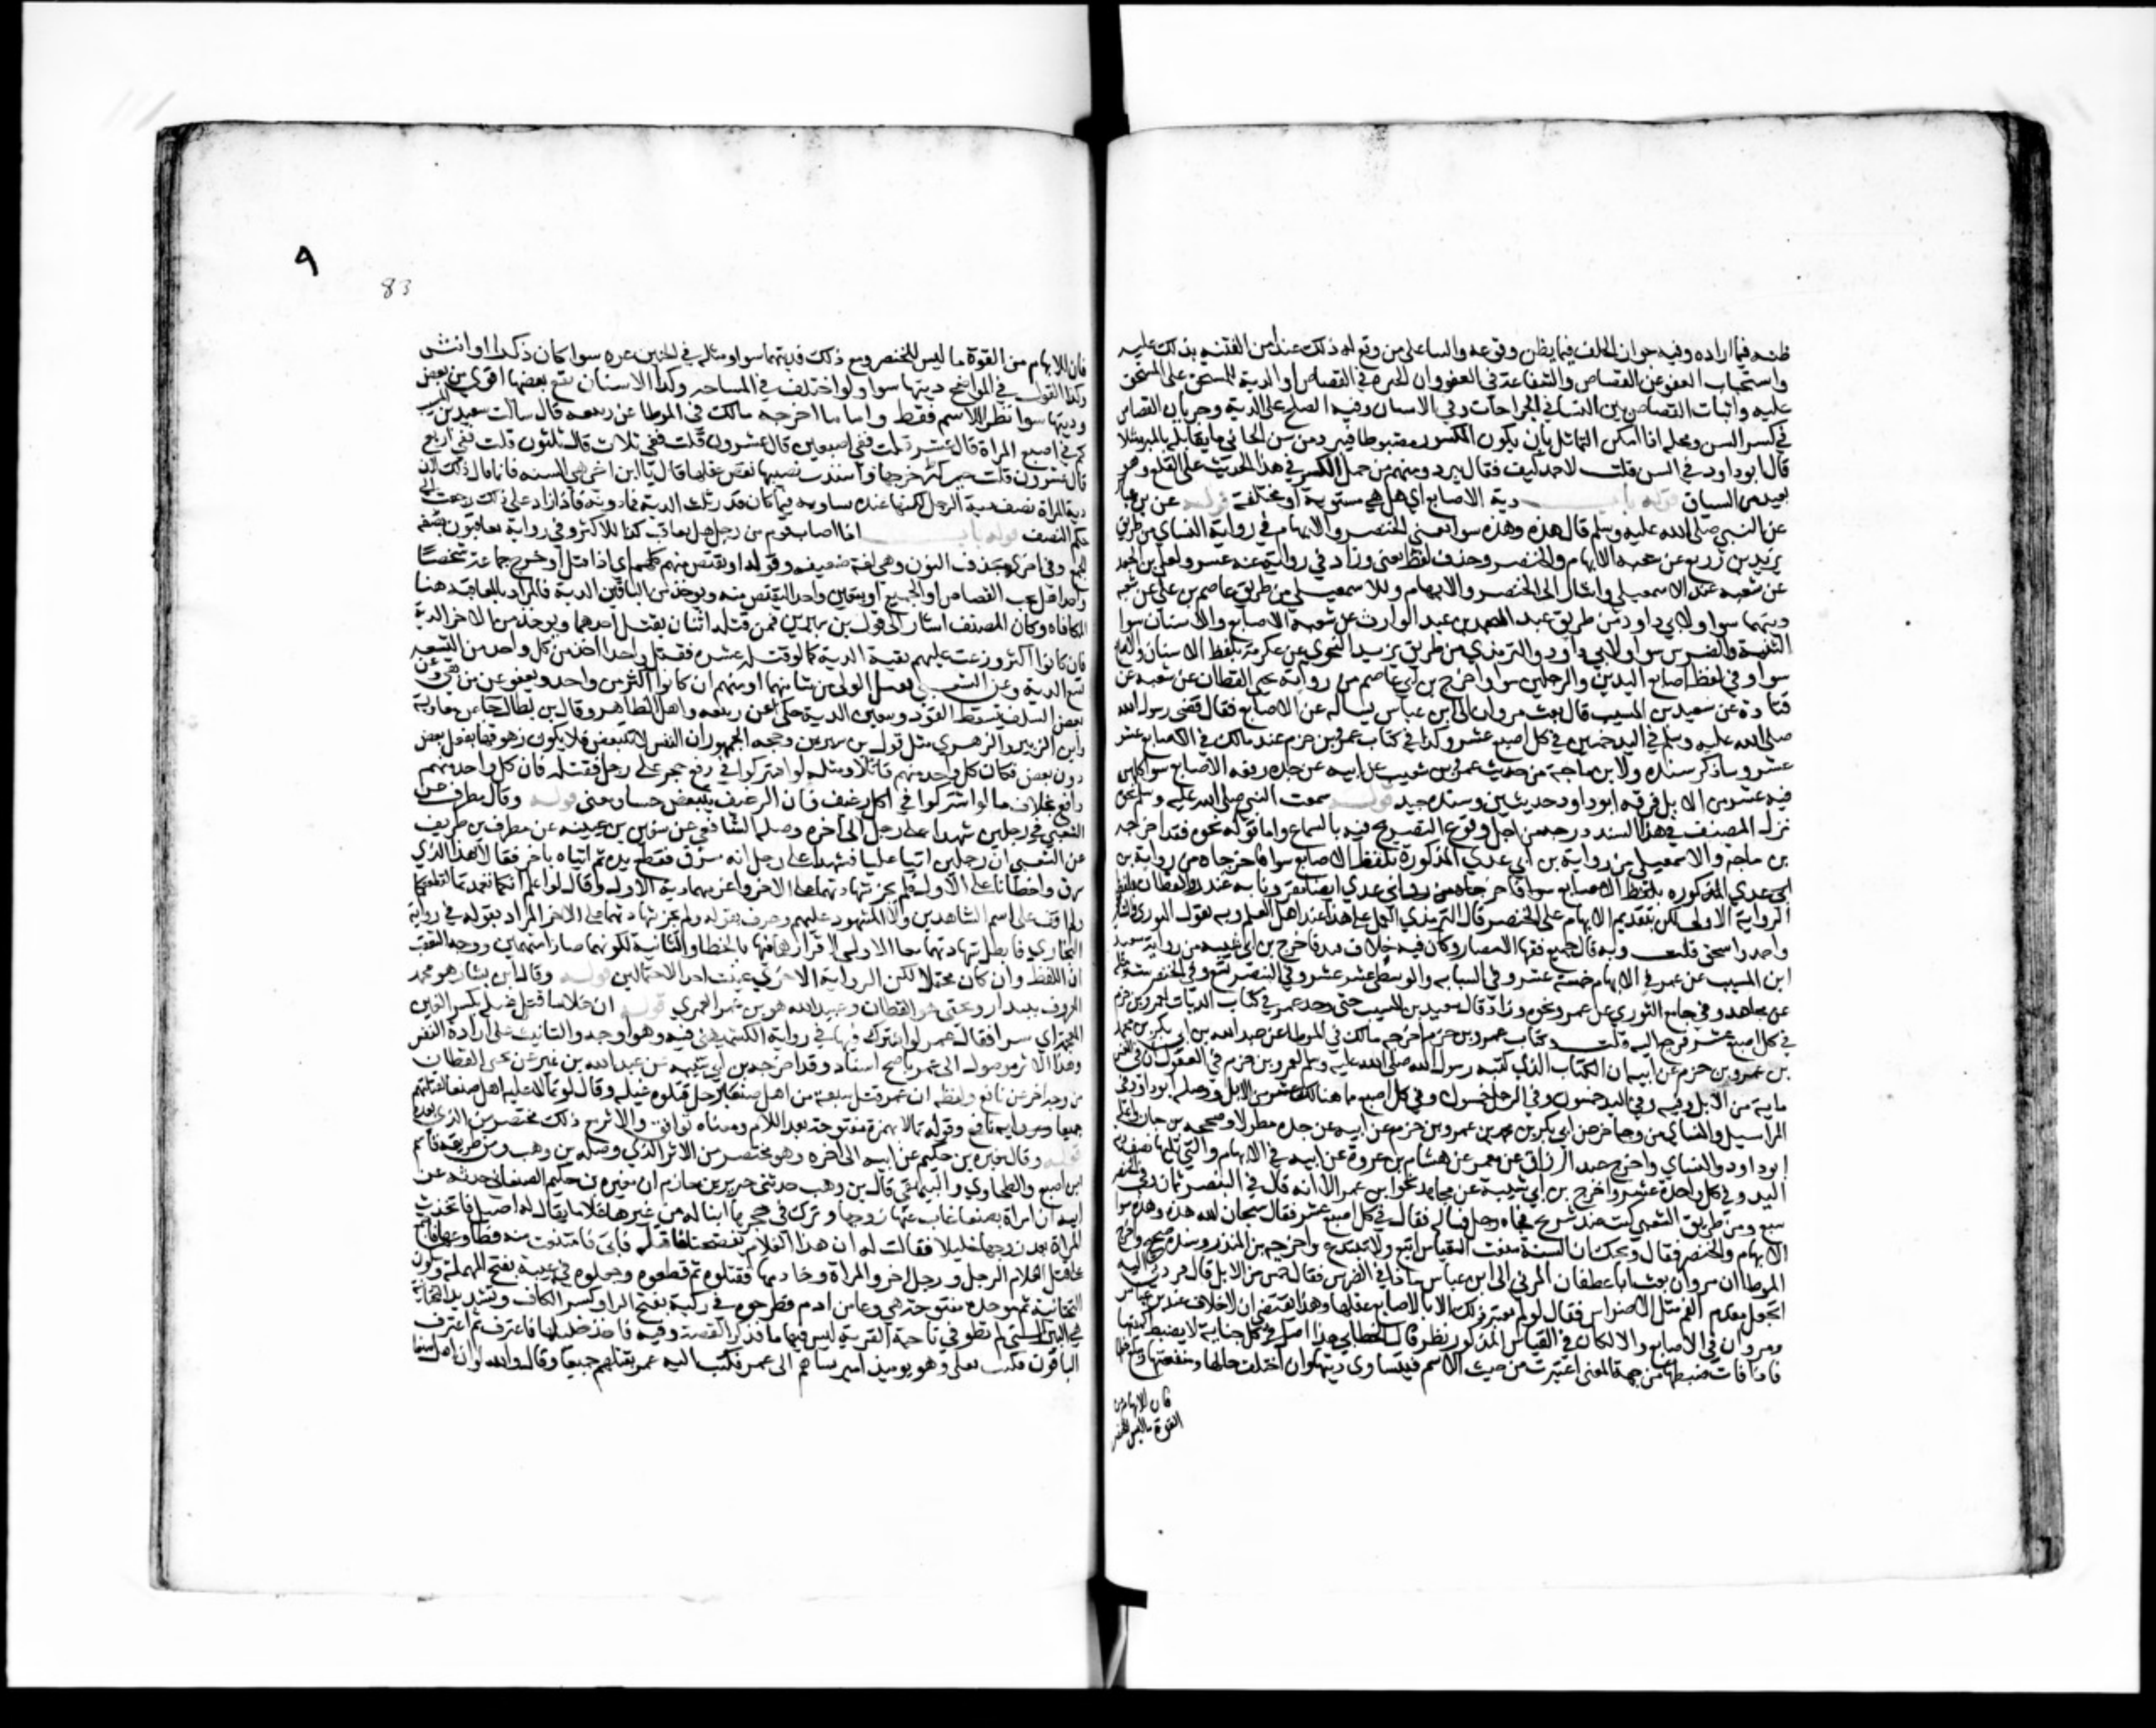 ظنه فيما اراده وفيه جواز الحلف فيما يظن وقوعه والثنا على من وقع له ذلك عند أمن الفتنه بذلك عليه
واستحباب العفو عن القصاص والشفاعة في العفو وان الخيره في القصاص او الدية للمستحق على المستحق
عليه واثبات القصاص بين النسا في الجراحات وفي الاسنان وفيه الصلح على الدية وجريان القصاص
في كسر السن ومحله اذا امكن التماثل بان يكون المكسور مضبوطا فيبرد من سن الجاني ما يقابله بالمبرد مثلا
قال ابو داود في السن قلت لاحمد كيف فقال يبرد ومنهم من حمل الكسر في هذا الحديث على القلع وهو
بعيد من السياق قوله باب دية الاصابع اي هل هي مستوية او مختلفة قوله عن بن عباس
عن النبي صلى الله عليه وسلم قال هذه وهذه سوا يعني الخنصر والابهام في رواية النساي من طريق
يزيد بن زريع عن شعبه الابهام والخنصر وحذف لفظ يعني وزاد في رواية عنه عشر عشر ولعلي بن الجعد
عن شعبه عند الاسمعيلي واشار الى الخنصر والابهام وللاسمعيلي من طريق عاصم بن علي عن شعبه
ديتهما سوا ولابي داود من طريق عبد الصمد بن عبد الوارث عن شعبة الاصابع والاسنان سوا
الثنية والضرس سوا ولابي داود والترمذي من طريق يزيد النحوي عن عكرمة بلفظ الاسنان والاصابع
سوا وفي لفظ اصابع اليدين والرجلين سوا واخرج بن ابي عاصم من رواية يحيى القطان عن شعبه عن
قتادة عن سعيد بن المسيب قال بعث مروان الى ابن عباس يساله عن الاصابع فقال قضى رسول الله
صلى الله عليه وسلم في اليد خمسين وكل اصبع عشر وكذا في كتاب عمرو بن حزم عند مالك في الاصابع عشر
عشر وساذكر سنده ولابن ماجة من حديث عمرو بن شعيب عن ابيه عن جده رفعه الاصابع سوا كلهن
فيه عشر من الابل فرقه ابو داود حديثين وسنده جيد قوله سمعت النبي صلى الله عليه وسلم نحوه
نزل المصنف في هذا السند درجه من اجل وقوع التصريح فيه بالسماع واما قوله نحوه فقد اخرجه
بن ماجة والاسمعيلي من رواية بن ابي عدي المذكورة بلفظ الاصابع سوا واخرجاه من رواية بن
ابي عدي المذكوره بلفظ الاصابع سوا
الرواية الاولى لكن بتقديم الابهام على الخنصر قال الترمذي العمل على هذا عند اهل العلم وبه يقول الثوري والشافعي
واحمد واسحق قلت وبه قال جميع فقها الامصار وكان فيه خلاف قديم فاخرج بن ابي شيبه من رواية سعيد
ابن المسيب عن عمر في الابهام خمسة عشر وفي السبابه والوسطى عشر عشر وفي البنصر تسع وفي الخنصر ست ومثله
عن مجاهد وفي جامع الثوري عن عمر نحوه وزاد قال سعيد بن المسيب حتى وجد عمر في كتاب الديات لعمرو بن حزم
في كل اصبع عشر فرجع اليه قلت وكتاب عمرو بن حزم اخرجه مالك في الموطا عن عبد الله بن ابي بكر بن محمد
بن عمرو بن حزم عن ابيه ان الكتاب الذي كتبه رسول الله صلى الله عليه وسلم لعمرو بن حزم في العقول ان في النفس
ماية من الابل وفيه وفي اليد خمسون وفي الرجل خمسون وفي كل اصبع مما هنالك عشر من الابل ووصله ابو داود في
المراسيل والنساي من وجه اخر عن ابي بكر بن محمد بن عمرو بن حزم عن ابيه عن جده مطولا وصححه بن حبان واعله
ابو داود والنساي واخرج عبد الرزاق عن معمر عن هشام بن عروة عن ابيه في الابهام والتي تليها نصف دية
اليد وفي كل واحدة عشر واخرج بن ابي شيبة عن مجاهد نحو اثر عمر الا انه قال في البنصر ثمان وفي الخنصر
سبع ومن طريق الشعبي كنت عند شريح فجاه رجل فساله فقال في كل اصبع عشر فقال سبحان الله هذه وهذه سوا
الابهام والخنصر فقال ويحك ان السنة منعت القياس اتبع ولا تبتدع واخرجه بن المنذر وسنده صحيح واخرج
الموطا ان مروان بعث ابا غطفان المري الى ابن عباس ماذا في الضرس فقال خمس من الابل قال فردني اليه
اتجعل مقدم الفم مثل الاضراس فقال لو لم تعتبر ذلك الا بالاصابع عقلها سوا وهذا يقتضي ان لا خلاف عند بن عباس
ومروان في الاصابع والا لكان في القياس المذكور نظر قال الخطابي هذا اصل في كل جناية لا يضبط كميتها
فاذا فات ضبطها من جهة المعنى اعتبرت من حيث الاسم فيتساوى ديتها وان اختلف حالها ومنفعتها
فان للابهام من
القوة ما ليس للخنصر
٩
83
فان للابهام من القوة ما ليس للخنصر ومع ذلك فديتهما سوا ومثله في الجنين غره سوا كان ذكرا او انثى
وكذا القول في المواضح ديتها سوا ولو اختلفت في المساحه وكذا الاسنان نفع بعضها اقوى من بعض
وديتها سوا نظرا للاسم فقط واما ما اخرجه مالك في الموطا عن ربيعه قال سالت سعيد بن المسيب
كم في اصبع المراة قال عشر قلت ففي اصبعين قال عشرون قلت ففي ثلاث قال ثلثون قلت ففي اربع
قال عشرون قلت حين عظم جرحها واشتدت مصيبتها نقص عقلها قال يا ابن اخي هي السنه فانما قال ذلك لان
دية المراة نصف دية الرجل لكنها عنده تساويه فيما كان قدر ثلث الدية فما دونه فاذا زاد على ذلك رجعت الى
حكم النصف قوله باب اذا اصاب قوم من رجل هل يعاقب كذا للاكثر وفي رواية يعاقبون بصيغة
الجمع وفي اخرى بحذف النون وهي لغة ضعيفه وقوله او يقتص منهم كلهم اي اذا قتل او جرح جماعة شخصا
واحدا هل يجب القصاص على الجميع او يتعين واحد ليقتص منه ويوخذ من الباقين الدية فالمراد بالمعاقبه هنا
المكافاه وكان المصنف اشار الى قول بن سيرين فيمن قتله اثنان يقتل احدهما ويوخذ من الاخر الدية
فان كانوا اكثر وزعت عليهم بقية الدية كما لو قتله عشره فقتل واحد اخذ من كل واحد من التسعه
تسع الدية وعن الشعبي يقتل الولي من شا منهما او منهم ان كانوا اكثر من واحد ويعفو عن من بقي وعن
بعض السلف يسقط القود ويتعين الدية حكي عن ربيعه واهل الظاهر وقال بن بطال جا عن معاوية
وابن الزبير والزهري مثل قول بن سيرين وحجه الجمهور ان النفس لا تتبعض فلا يكون زهوقها بفعل بعض
دون بعض فكان كل واحد منهم قاتلا ومثله لو اشتركوا في رفع حجر على رجل فقتله فان كل واحد منهم
رافع بخلاف ما لو اشتركوا في اكل رغيف فان الرغيف يتبعض حسا ومعنى قوله وقال مطرف عن
الشعبي في رجلين شهدا على رجل الى اخره وصله الشافعي عن سفين بن عيينه عن مطرف بن طريف
عن الشعبي ان رجلين اتيا عليا فشهدا على رجل انه سرق فقطع يده ثم اتياه باخر فقالا هذا الذي
سرق واخطانا على الاول فلم يجز شهادتهما على الاخر واغرمهما دية الاول وقال لو اعلم انكما تعمدتما لقطعتكما
ولم اقف على اسم الشاهدين ولا المشهود عليهم وعرف بقوله ولم يجز شهادتهما على الاخر المراد بقوله في رواية
البخاري فابطل شهادتهما معا الاولى لاقرارهما فيها بالخطا والثانية لكونهما صارا متهمين ووجه التعقب
ان اللفظ وان كان محتملا لكن الرواية الاخرى عينت احد الاحتمالين قوله وقال ابن بشار هو محمد
المعروف ببندار ويحيى هو القطان وعبيد الله هو بن عمر العمري قوله ان غلاما قتل غيلة بكسر الغين
المعجمة اي سرا فقال عمر لو اشترك فيها في رواية الكشميهني فيه وهو اوجه والتانيث على ارادة النفس
وهذا الاثر موصول الى عمر باصح اسناد وقد اخرجه بن ابي شيبه عن عبد الله بن نمير عن يحيى القطان
من وجه اخر عن نافع ولفظه ان عمر قتل سبعة من اهل صنعا برجل قتلوه غيلة وقال لو تمالا عليه اهل صنعا لقتلتهم
جميعا وقوله تمالا بهمزة مفتوحة بعد اللام ومعناه توافق والاثر مع ذلك مختصر من الذي بعده
قوله وقال مغيره بن حكيم عن ابيه الى اخره وهو مختصر من الاثر الذي وصله بن وهب ومن طريقه قاسم
ابن اصبغ والطحاوي والبيهقي قال بن وهب حدثني جرير بن حازم ان مغيره بن حكيم الصنعاني حدثه عن
ابيه ان امراة بصنعا غاب عنها زوجها وترك في حجرها ابنا له من غيرها غلاما يقال له اصيل فاتخذت
المراة بعد زوجها خليلا فقالت له ان هذا الغلام يفضحنا فاقتله فابى فامتنعت منه فطاوعها فاجتمع
على قتل الغلام الرجل ورجل اخر والمراة وخادمها فقتلوه ثم قطعوه وجعلوه في عيبة بفتح المهملة وسكون
التحتانية ثم موحدة مفتوحة هي وعا من ادم فطرحوه في ركية بفتح الرا وكسر الكاف وتشديد التحتانية
هي البير التي لم تطو في ناحية القرية ليس فيها ما فذكر القصة وفيه فاخذ خليلها فاعترف ثم اعترف
الباقون فكتب يعلى وهو يوميذ امير بشانهم الى عمر فكتب اليه عمر بقتلهم جميعا وقال والله لو ان اهل صنعا